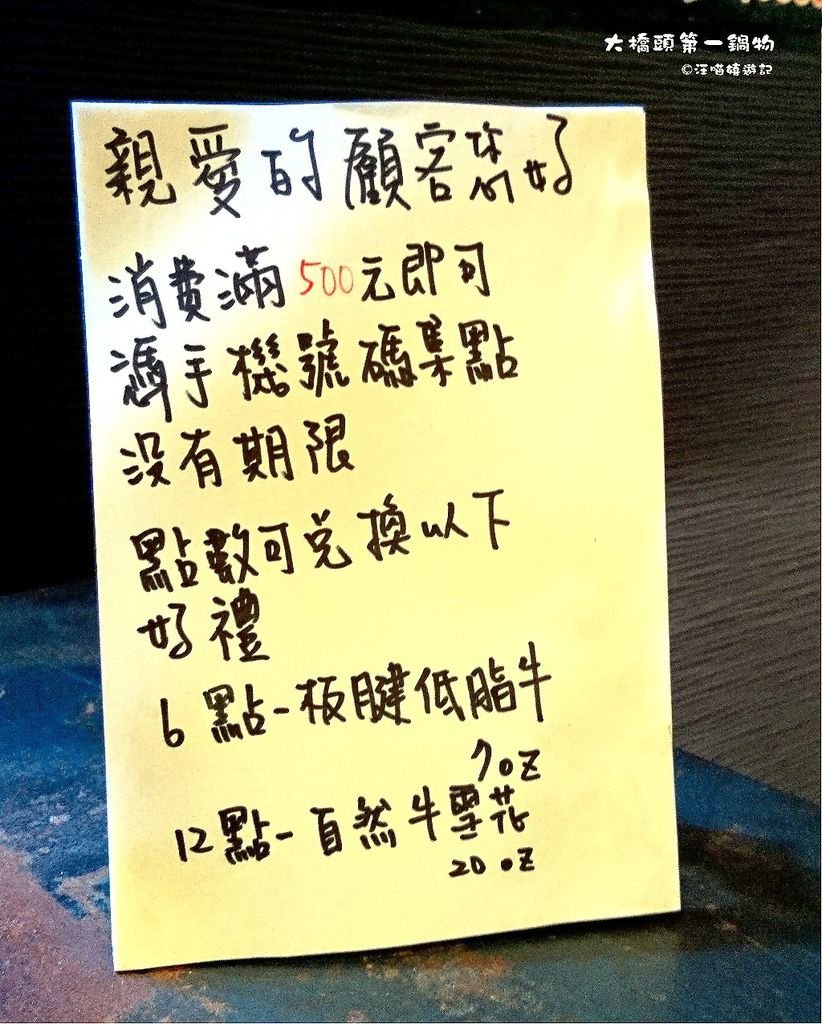 大橋頭第一鍋物
©汪喵嬉遊記
親愛的顧客您好
消費滿500元即可
憑手機號碼集點
没有期限
點數可兑換以下
好禮
6點-板腱低脂牛
7oz
12點-自然牛雪花
20 oz